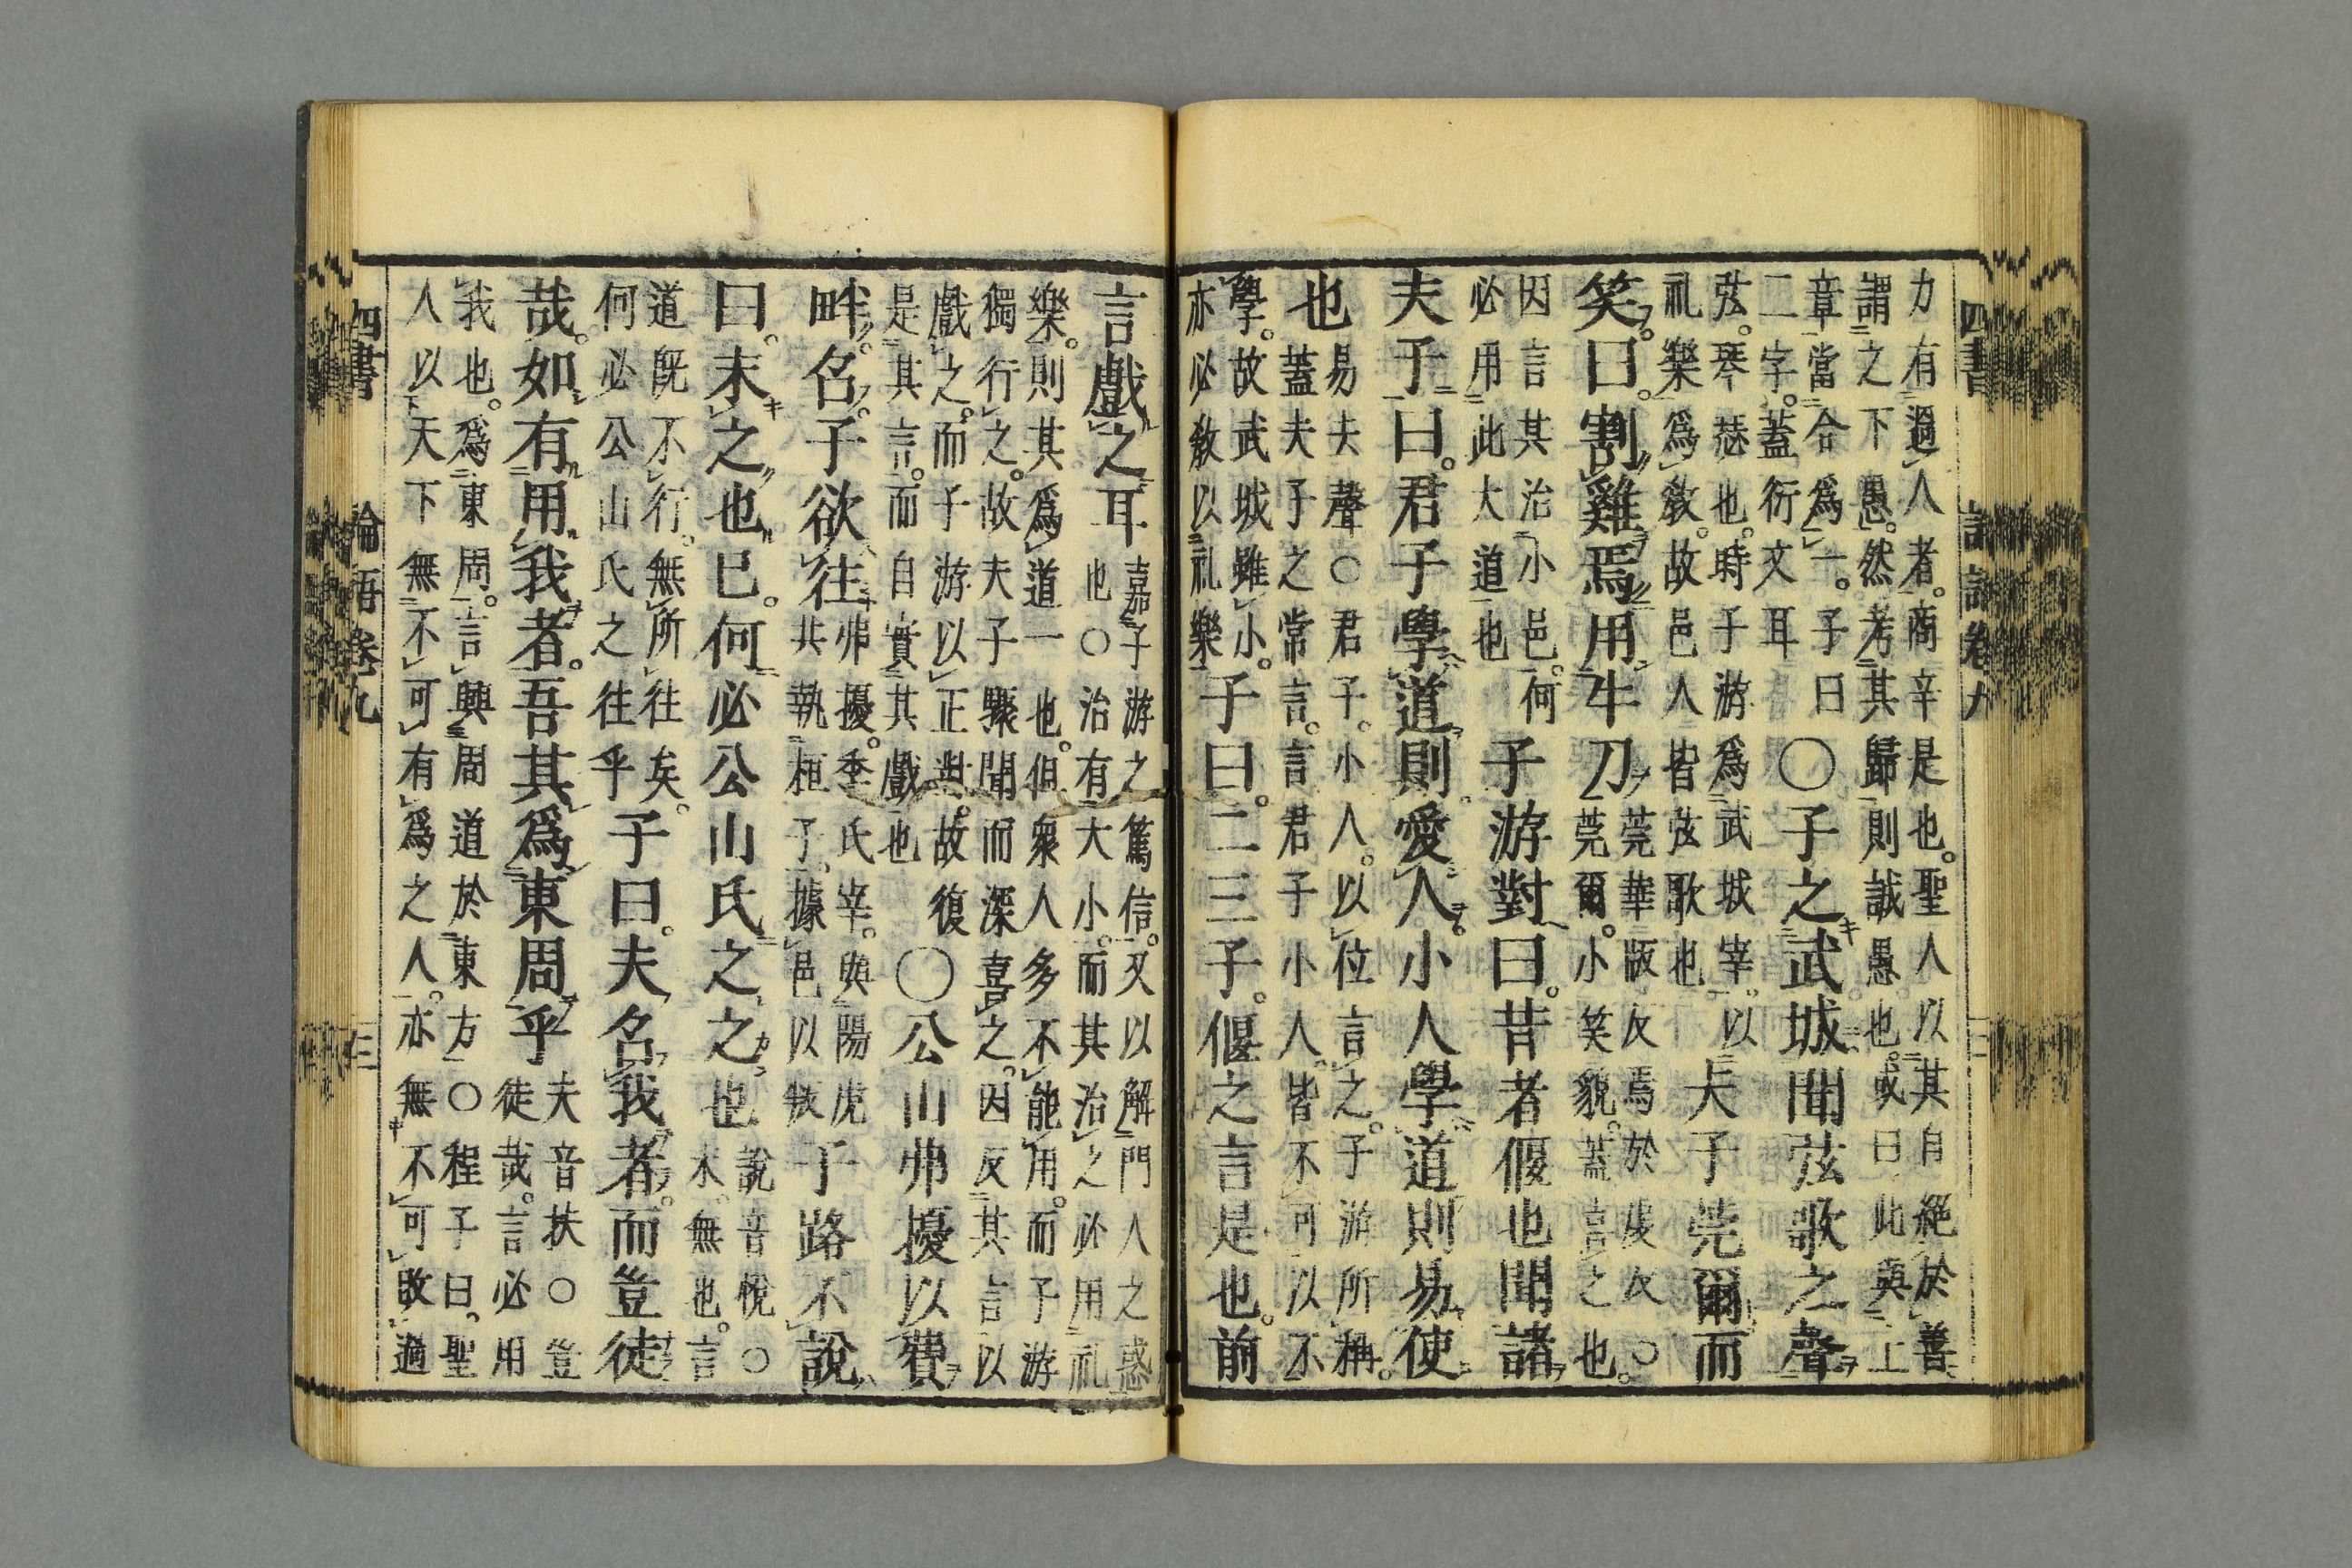 力有過人者。商辛是也。聖人以其自絕於善。
謂之下愚。然考其歸則誠愚也。或曰此與上
章當合爲一。子曰
二字。蓋衍文耳
○子之武城聞弦歌之聲
弦。琴瑟也。時子游爲武城宰。以
礼樂爲敎。故邑人皆弦歌也
夫子莞爾而
笑曰。割雞焉用牛刀
莞華版反焉於虔反○
莞爾。小笑貌。蓋喜之也。
因言其治小邑。何
必用此大道也
子游對曰。昔者偃也聞諸
夫子曰。君子學道則愛人。小人學道則易使
也
易去聲○君子。小人。以位言之。子游所稱。
蓋夫子之常言。言君子小人。皆不可以不
學。故武城雖小。
亦必敎以礼樂
子曰。二三子。偃之言是也。前
言戲之耳
嘉子游之篤信。又以解門人之惑
也○治有大小。而其治之必用礼
樂。則其爲道一也。但衆人多不能用。而子游
獨行之。故夫子驟聞而深喜之。因反其言以
戲之。而子游以正對。故復
是其言。而自實其戲也
○公山弗擾以費
畔。召。子欲往
弗擾。季氏宰。與陽虎
共執桓子。據邑以叛
子路不說
曰。末之也已。何必公山氏之之也
說音悅○
末。無也。言
道旣不行。無所往矣。
何必公山氏之往乎
子曰。夫召我者。而豈徒
哉。如有用我者。吾其爲東周乎
夫音扶○豈
徒哉。言必用
我也。爲東周。言興周道於東方○程子曰。聖
人以天下無不可有爲之人。亦無不可改過
四書 論語卷九 三